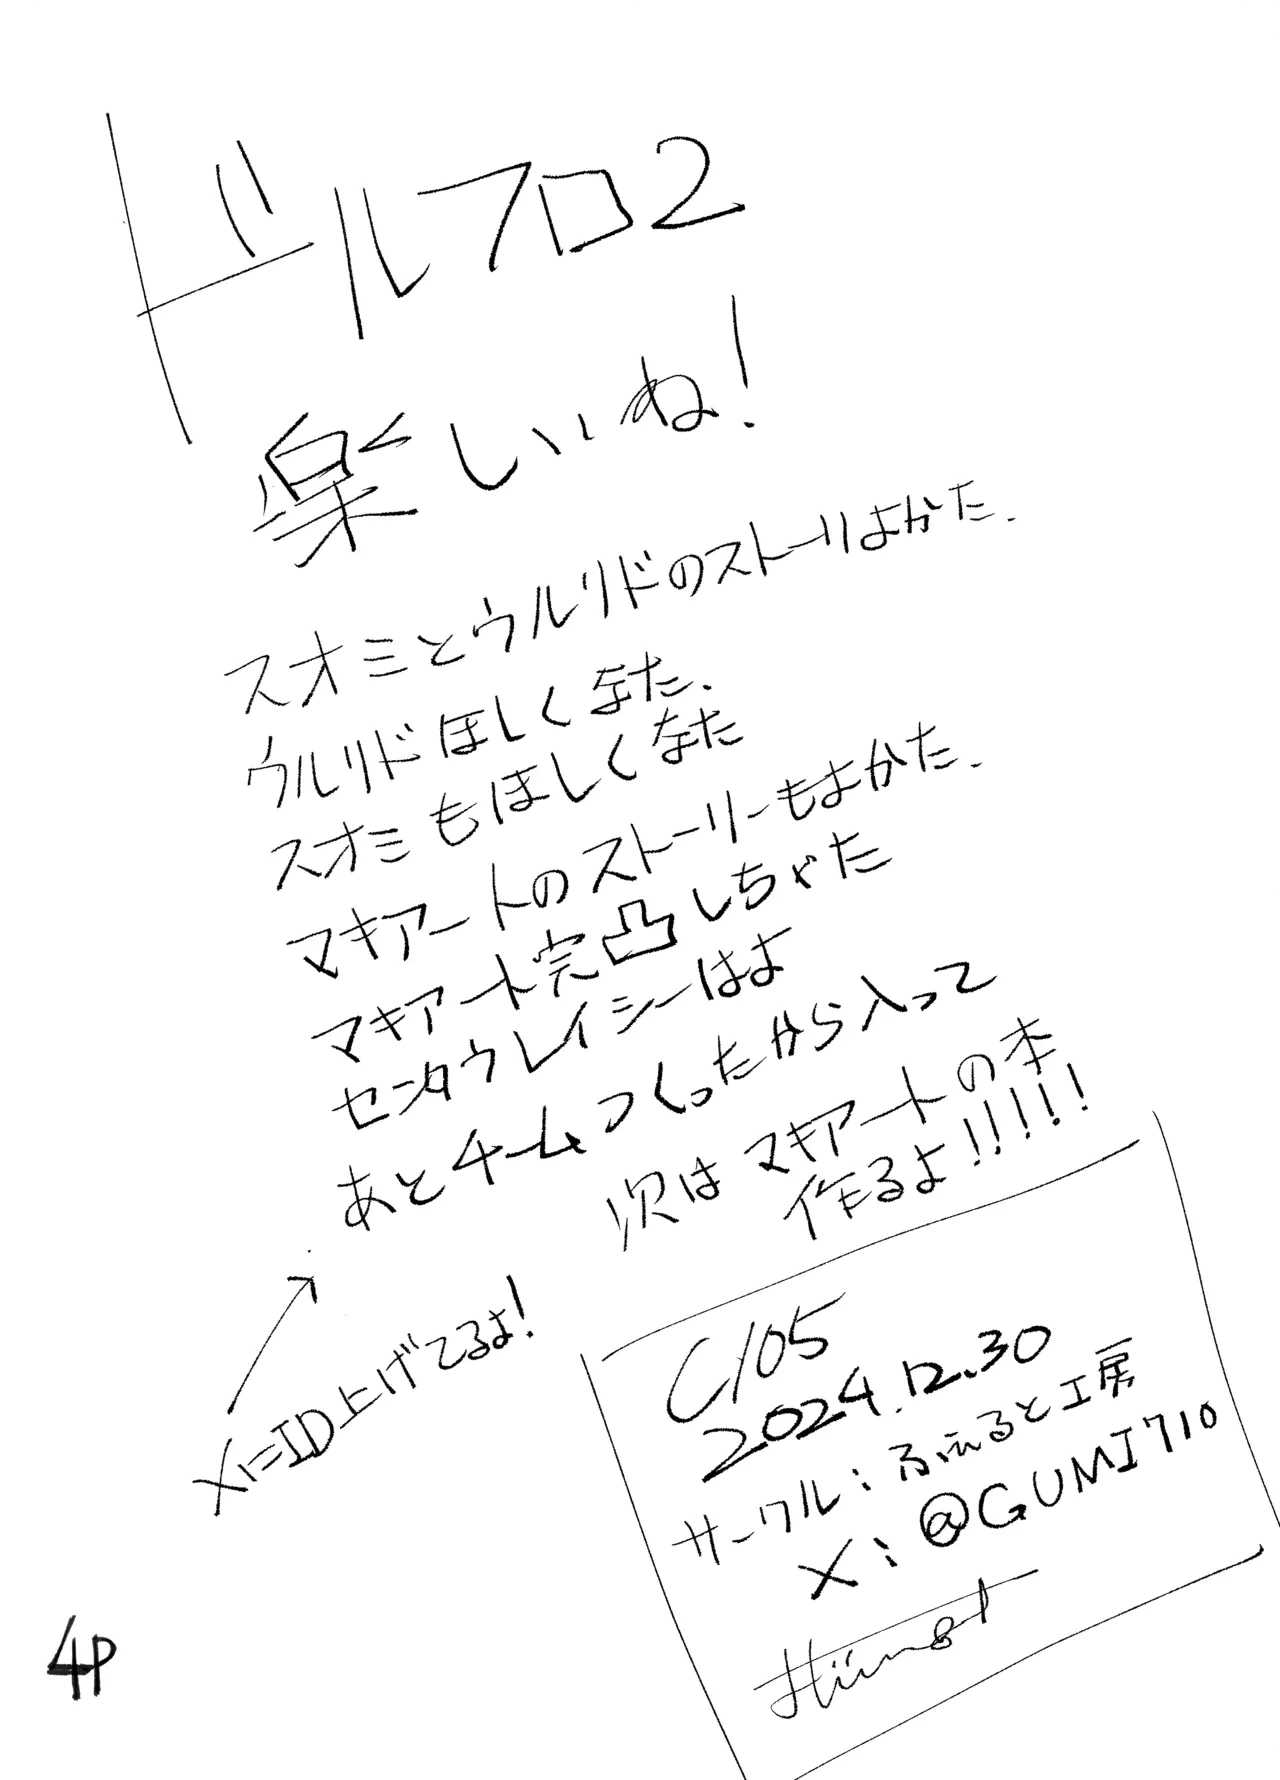 ドルフロ2
楽しいね!
スオミとウルリドのストーリよかた.
ウルリドほしくなた.
スオミもほしくなた
マキアートのストーリーもよかた.
マキアート完凸しちゃた
センタウレイシーはよ
あとチームつくったから入って
次はマキアートの本
作るよ!!!!!
XにID上げてるよ!
C105
2024.12.30
サークル:ふぇると工房
X:@GUMI710
4P